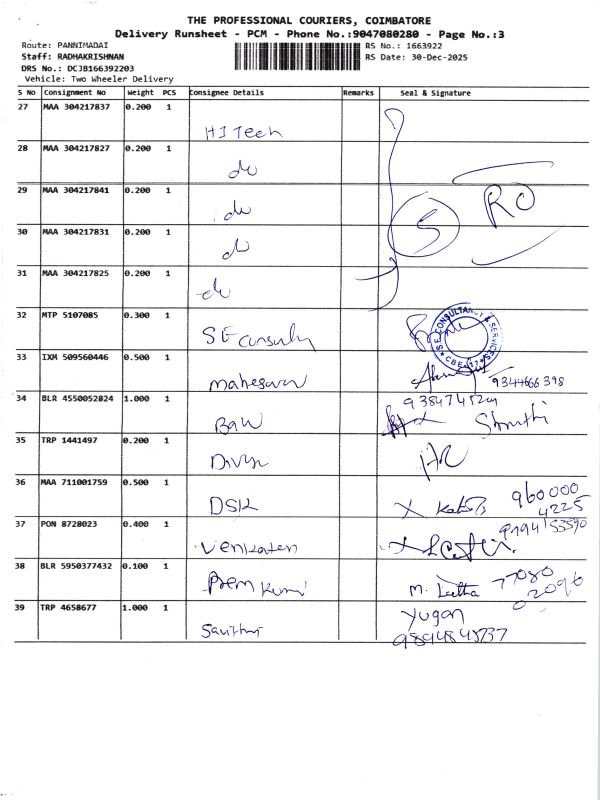 THE PROFESSIONAL COURIERS, COIMBATORE
Delivery Runsheet - PCM - Phone No.:9047080280 - Page No.:3
Route: PANNIMADAI
RS No.: 1663922
Staff: RADHAKRISHNAN
RS Date: 30-Dec-2025
DRS No.: DCJB166392203
Vehicle: Two Wheeler Delivery
S No Consignment No Weight PCS Consignee Details Remarks Seal & Signature
27 MAA 304217837 0.200 1
HI Tech
28 MAA 304217827 0.200 1
do
29 MAA 304217841 0.200 1
do
30 MAA 304217831 0.200 1
do
31 MAA 304217825 0.200 1
do
5
RO
32 MTP 5107085 0.300 1
SE consulty
S.E. CONSULTANCY & SERVICES
CBE-17
33 IXM 509560446 0.500 1
maheswari
9344666398
34 BLR 4550052824 1.000 1
Balu
Shruthi
35 TRP 1441497 0.200 1
Divya
36 MAA 711001759 0.500 1
DSK
960000
4225
37 PON 8728023 0.400 1
Venkatesh
38 BLR 5950377432 0.100 1
Prem Kumar
M. Leetha 77080
02096
39 TRP 4658677 1.000 1
Savithri
Yugan
9894845737